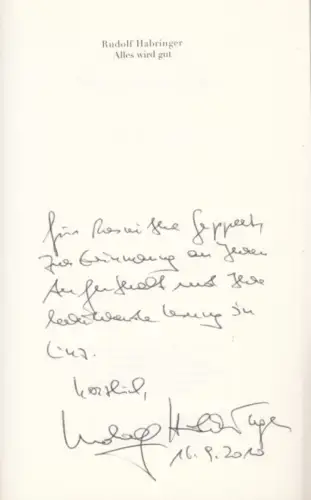 Rudolf Habringer
Alles wird gut
für Roswitha Geppert,
zur Erinnerung an Ihren
Aufenthalt und Ihre
Lesung in
Linz.
Herzlich,
Rudolf Habringer
16.9.2010